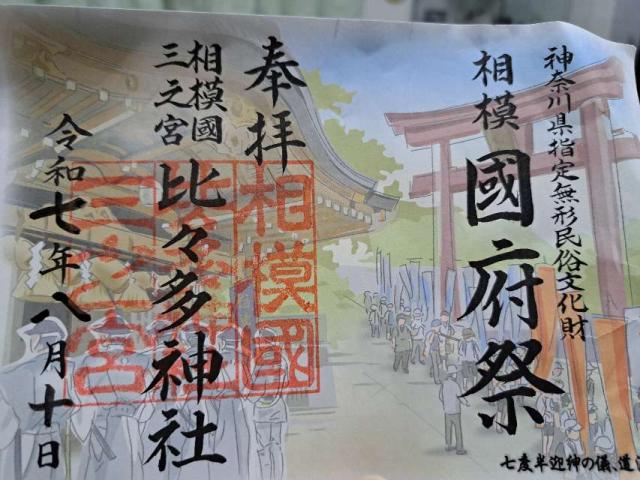 神奈川県指定無形民俗文化財
相模 國府祭
七度半迎神の儀、道
奉拝
相模國
三之宮
比々多神社
令和七年八月十日
相模國
三之宮